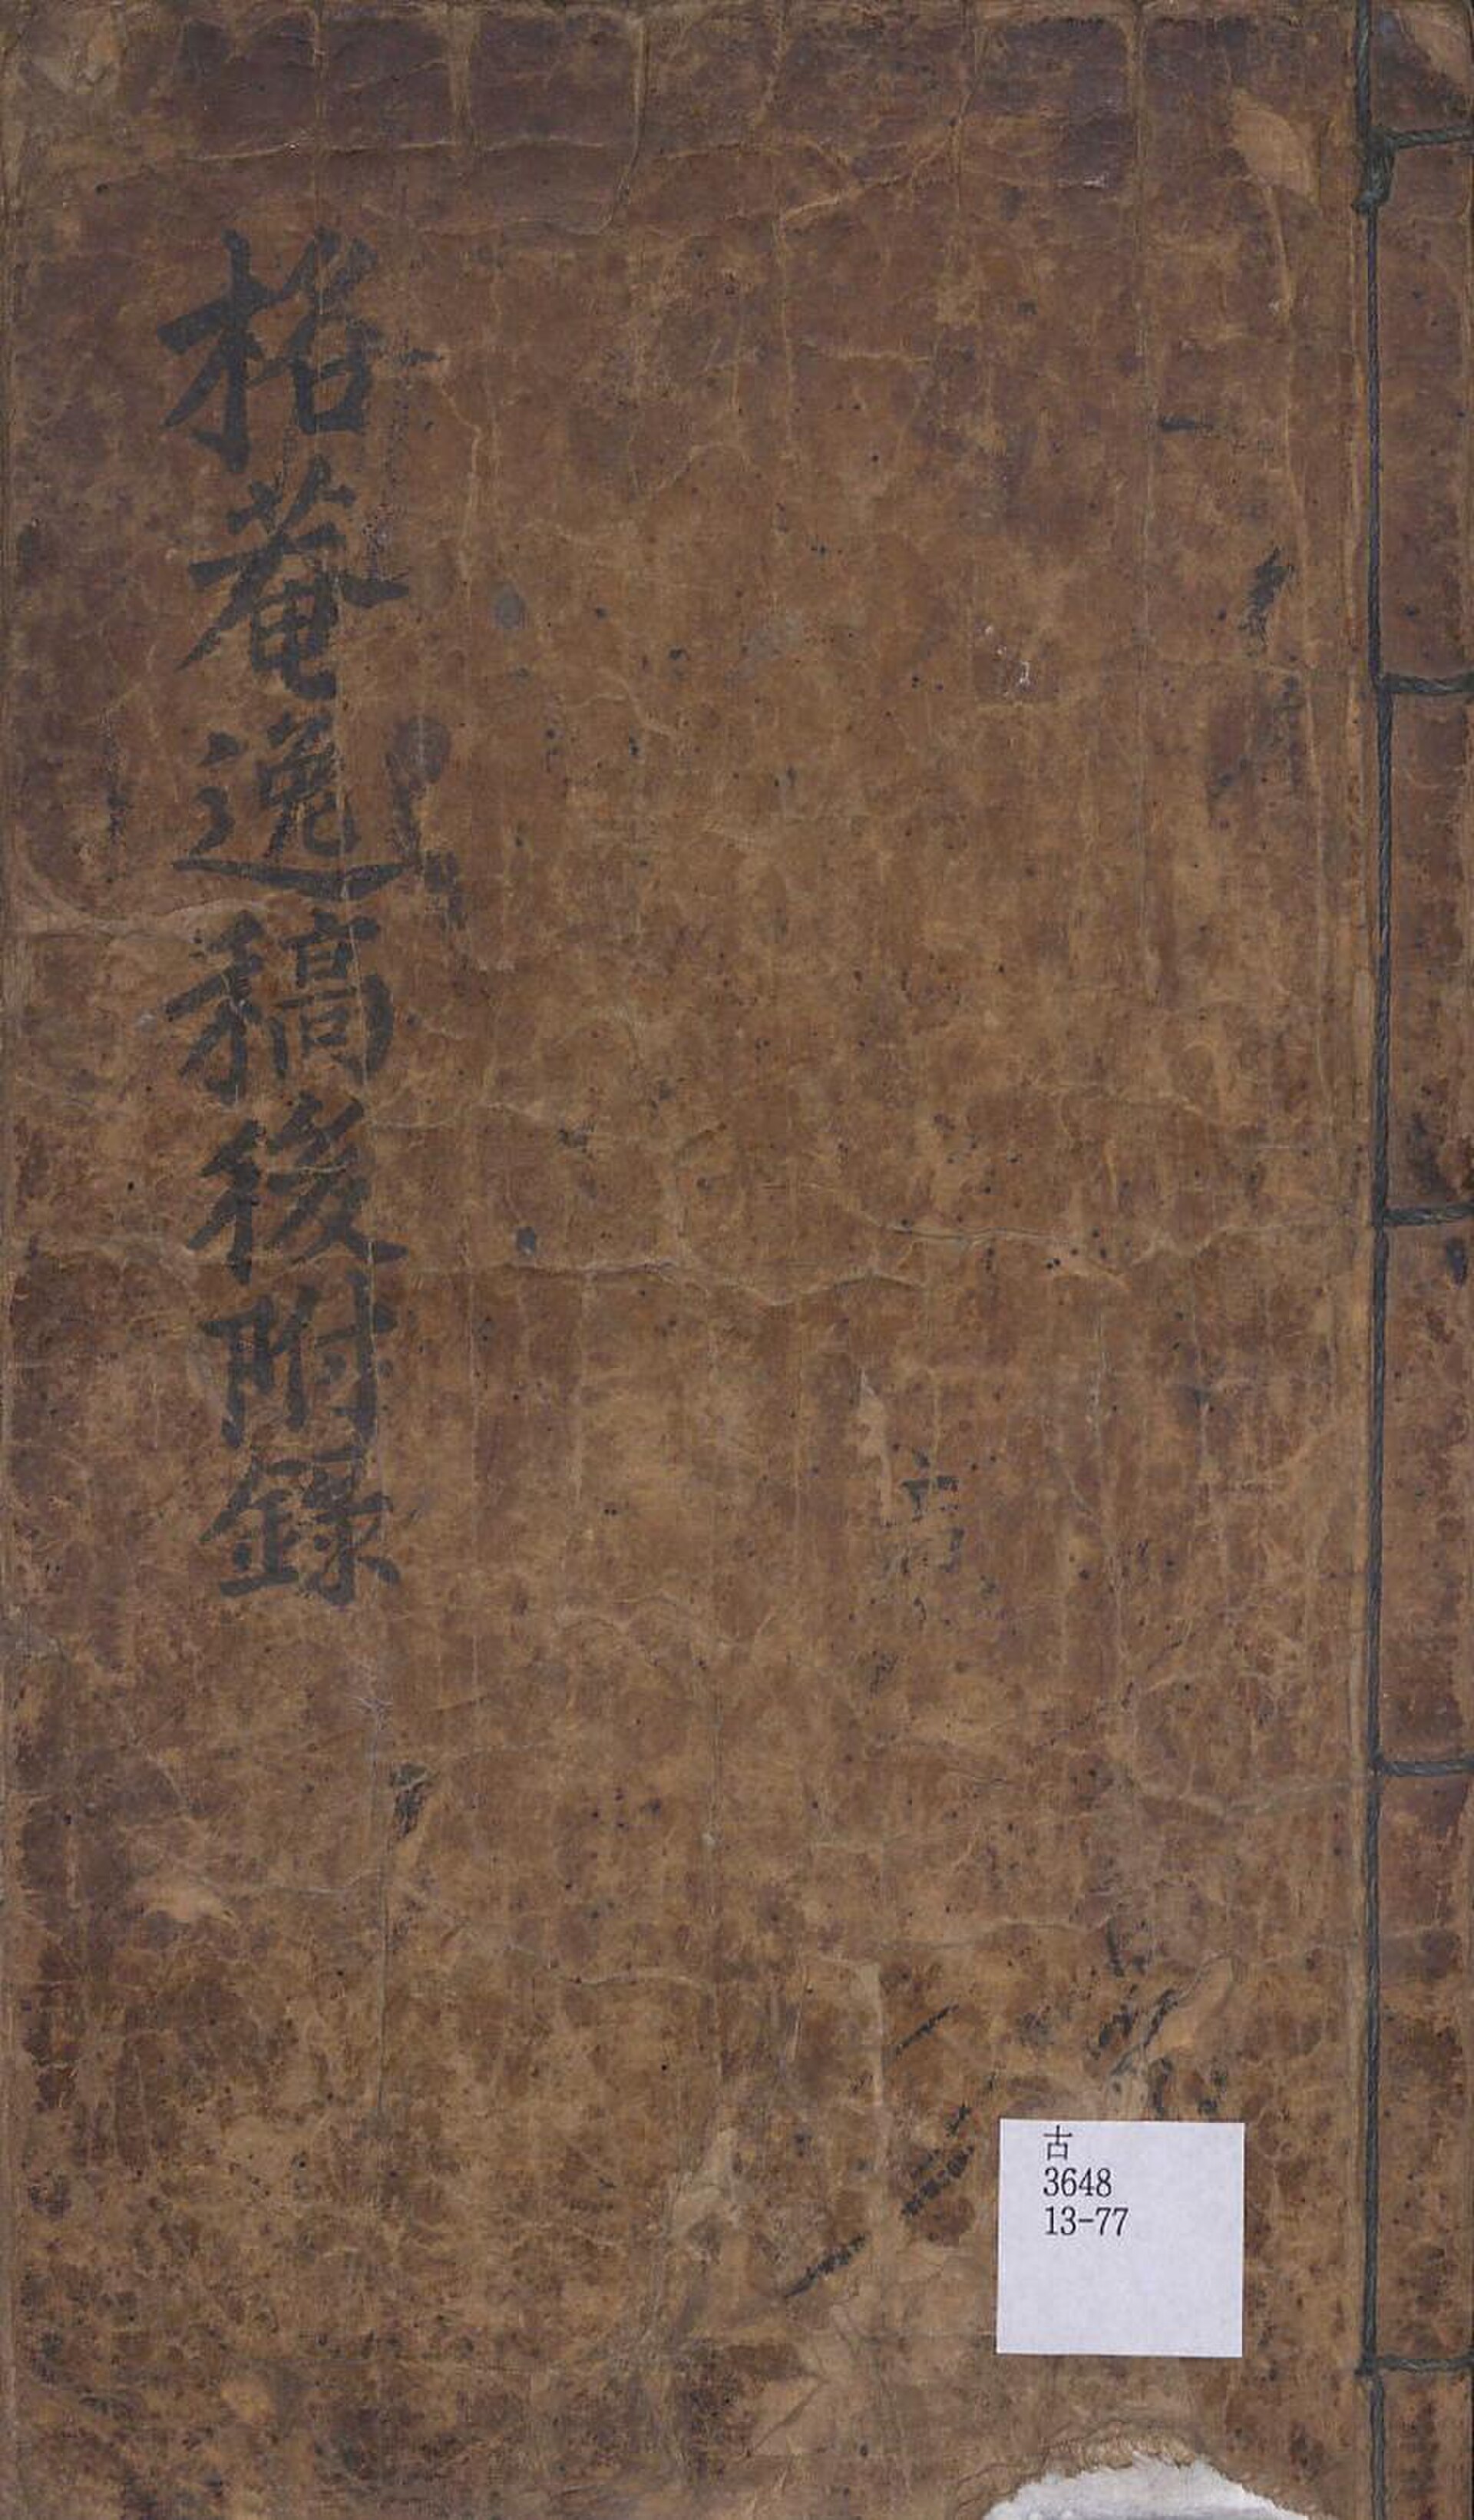 格菴逸稿後附錄
古
3648
13-77